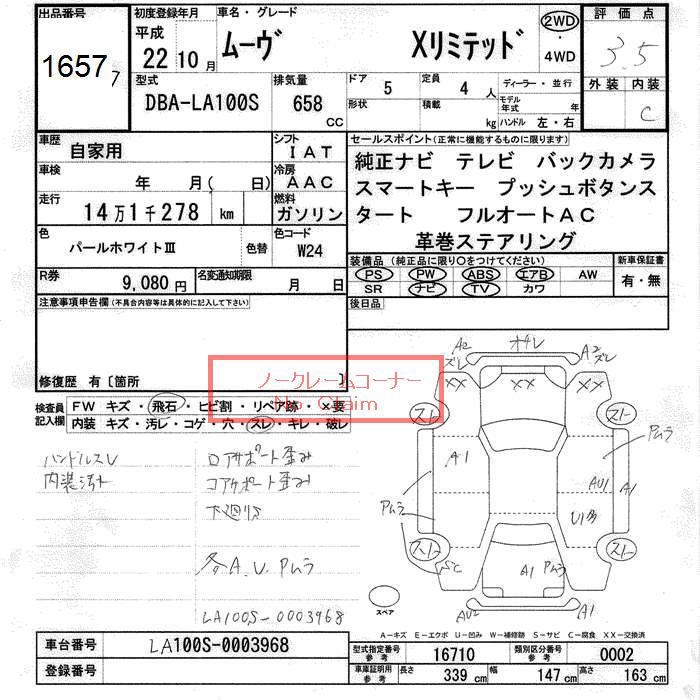 出品番号
1657 7
初度登録年月
平成 22年 10月
車名・グレード
ムーヴ Xリミテッド
2WD
・
4WD
評価点
3.5
外装 内装
C
型式
DBA-LA100S
排気量
658 CC
ドア 5
定員 4 人
形状
積載 kg
ディーラー・並行
モデル年式 年
ハンドル 左・右
車歴
自家用
シフト
IAT
車検
年 月( 日)
冷房
AAC
走行
14万1千278 km
燃料
ガソリン
色
パールホワイトⅢ
色替
色コード
W24
R券
9,080円
名変通知期限
月 日
セールスポイント(正常に機能するものに限ります)
純正ナビ テレビ バックカメラ
スマートキー プッシュボタンス
タート フルオートAC
革巻ステアリング
装備品(純正品に限り○をつけてください)
PS PW ABS エアB AW
SR ナビ TV カワ
新車保証書
有・無
後日品
注意事項申告欄(不具合内容等は具体的に記入して下さい)
修復歴 有〔箇所 〕
ノークレームコーナー
No Claim
検査員記入欄
FW キズ・飛石・ヒビ割・リペア跡・×要
内装 キズ・汚レ・コゲ・穴・スレ・キレ・破レ
ハンドルスレ
内装汚れ
ロアサポート歪み
コアサポート歪み
下廻りS
各A.U.Pムラ
LA100S-0003968
A2
ズレ
オサレ
A2
ズレ
XX XX XX
スト スト
A1
Pムラ
AU1
A1
Pムラ
スト スト
SC
A1 Pムラ
AU2
A1
スペア
A−キズ E−エクボ U−凹み W−補修跡 S−サビ C−腐食 XX−交換済
車台番号
LA100S-0003968
登録番号
型式指定番号
参考
16710
類別区分番号
参考
0002
車庫証明用
参考
長さ 339 cm
幅 147 cm
高さ 163 cm